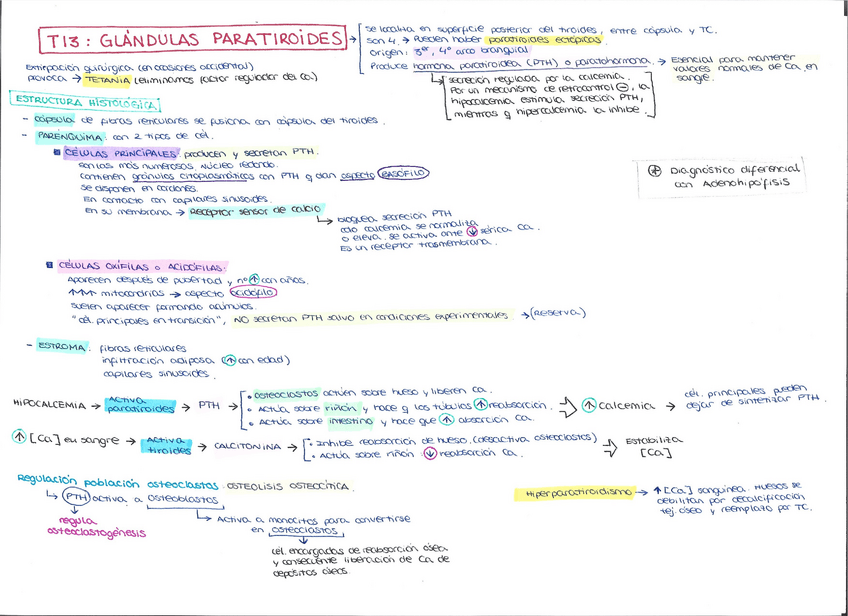 T13: GLÁNDULAS PARATIROIDES →
Se localiza en superficie posterior del tiroides, entre cápsula y TC.
son 4. → Pueden haber paratiroides ectópicas.
origen: 3er, 4º arco branquial
Produce hormona paratiroidea (PTH) o paratohormona. → Esencial para mantener
valores normales de Ca en
sangre.
Secreción regulada por la calcemia.
Por un mecanismo de retrocontrol ⊖, la
hipocalcemia estimula secreción PTH,
mientras q hipercalcemia la inhibe.
Extirpación quirúrgica (en ocasiones accidental)
provoca → TETANIA (eliminamos factor regulador del Ca)
ESTRUCTURA HISTOLÓGICA
- Cápsula de fibras reticulares se fusiona con cápsula del tiroides.
- PARÉNQUIMA: con 2 tipos de cél.
CÉLULAS PRINCIPALES: producen y secretan PTH.
son las más numerosas. Núcleo redondo.
contienen gránulos citoplasmáticos con PTH q dan aspecto BASÓFILO
se disponen en cordones.
En contacto con capilares sinusoides.
en su membrana → Receptor sensor de calcio
↳ bloquea secreción PTH
cdo calcemia se normaliza
o eleva. se activa ante ↓ sérica Ca.
Es un receptor trasmembrana.
Diagnóstico diferencial
con Adenohipófisis
CÉLULAS OXÍFILAS o ACIDÓFILAS:
Aparecen después de pubertad y nº ↑ con años.
↑↑↑ mitocondrias → aspecto acidófilo
suelen aparecer formando acúmulos.
"cél. principales en transición", NO secretan PTH salvo en condiciones experimentales. → (Reserva)
- ESTROMA: fibras reticulares
infiltración adiposa (↑ con edad)
capilares sinusoides.
HIPOCALCEMIA → Activa paratiroides → PTH →
• osteoclastos actúen sobre hueso y liberen Ca.
• Actúa sobre riñón y hace q los túbulos ↑ reabsorción.
• Actúa sobre intestino y hace que ↑ absorción Ca.
⇒ ↑ calcemia → cél. principales pueden
dejar de sintetizar PTH.
↑ [Ca] en sangre → Activa tiroides → CALCITONINA →
• Inhibe reabsorción de hueso. (desactiva osteoclastos)
• Actúa sobre riñón ↓ reabsorción Ca.
⇒ Estabiliza
[Ca]
Regulación población osteoclastos. OSTEOLISIS OSTEOCÍTICA.
↳ PTH activa a osteoblastos
↓
regula
osteoclastogénesis
↳ Activa a monocitos para convertirse
en osteoclastos
↓
cél. encargadas de reabsorción ósea
y consecuente liberación de Ca de
depósitos óseos.
Hiperparatiroidismo → ↑ [Ca] sanguínea. Huesos se
debilitan por decalcificación
tej. óseo y reemplazo por TC.